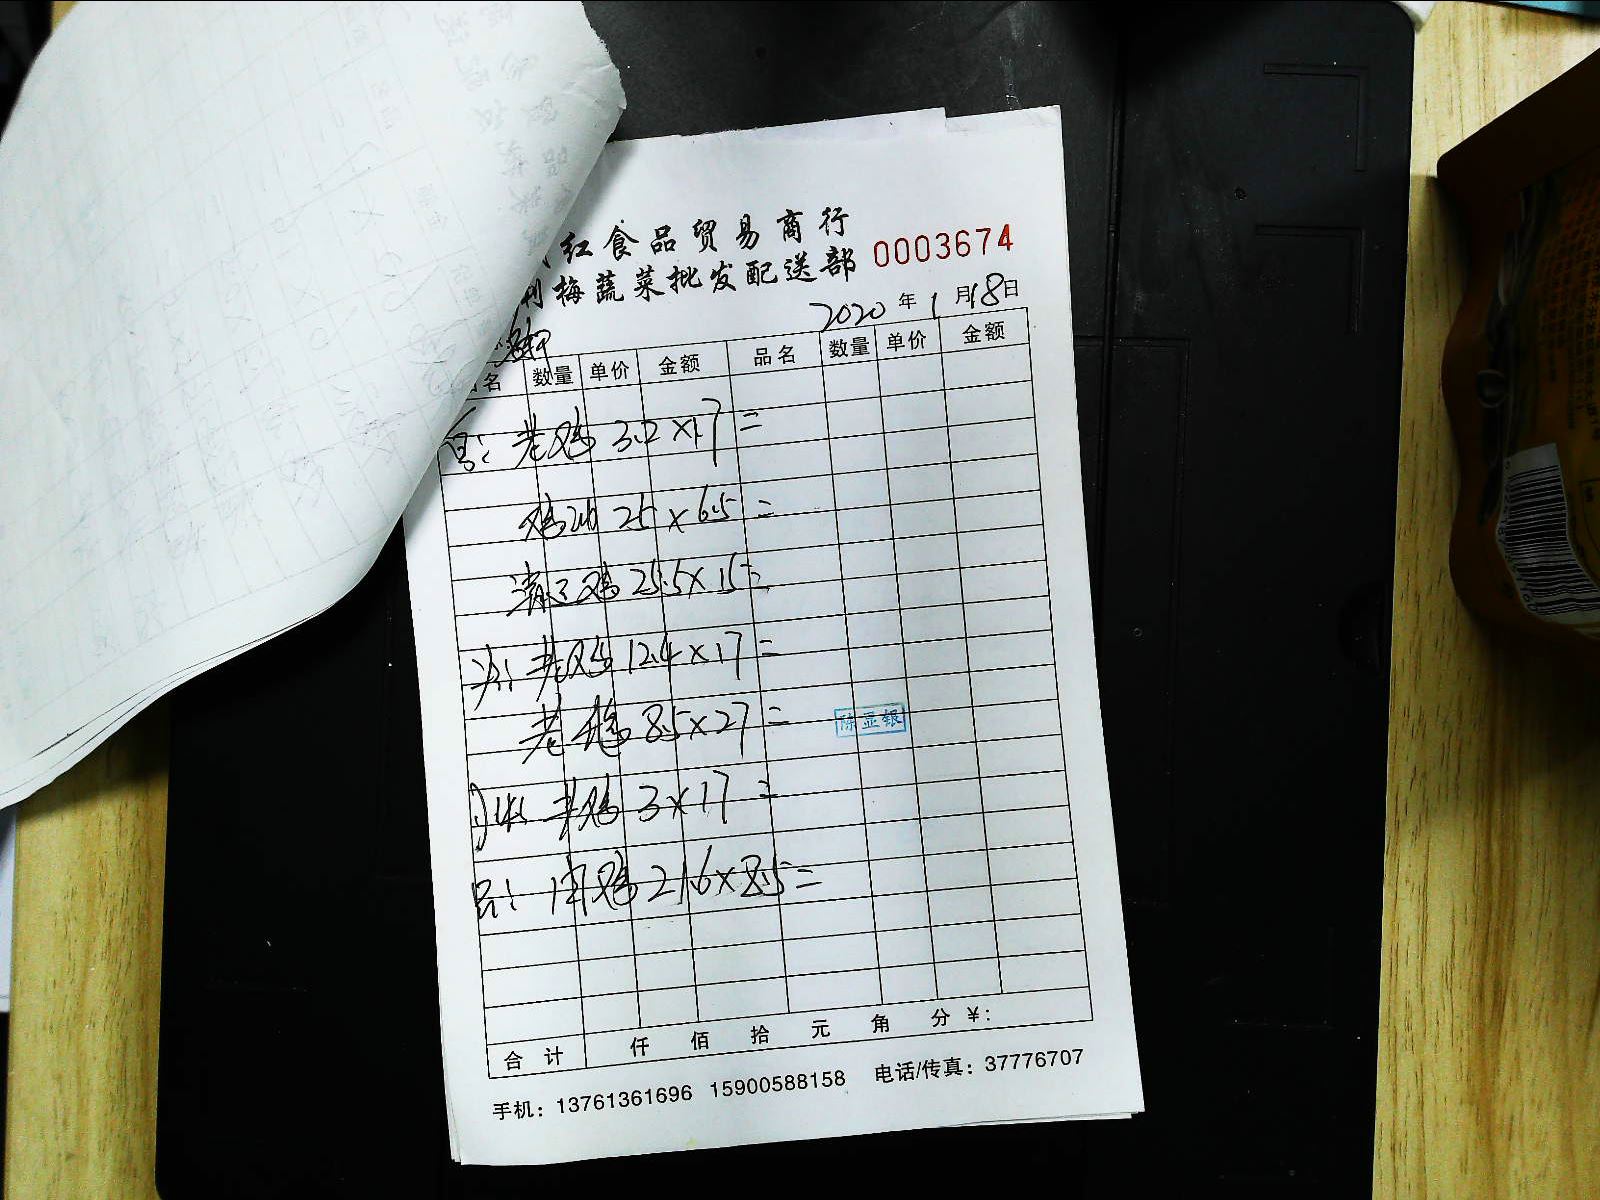 红食品贸易商行
利梅蔬菜批发配送部 0003674
2020年1月18日
名 数量 单价 金额 品名 数量 单价 金额
老鸡 3.2×17=
鸡 25×6.5=
清远鸡 25.5×15=
老鸡 12.4×17=
老鸭 8.5×27=
陈亚银
老鸡 3×17=
鸡 21.6×8.5=
合计 仟 佰 拾 元 角 分 ¥:
手机：13761361696 15900588158 电话/传真：37776707